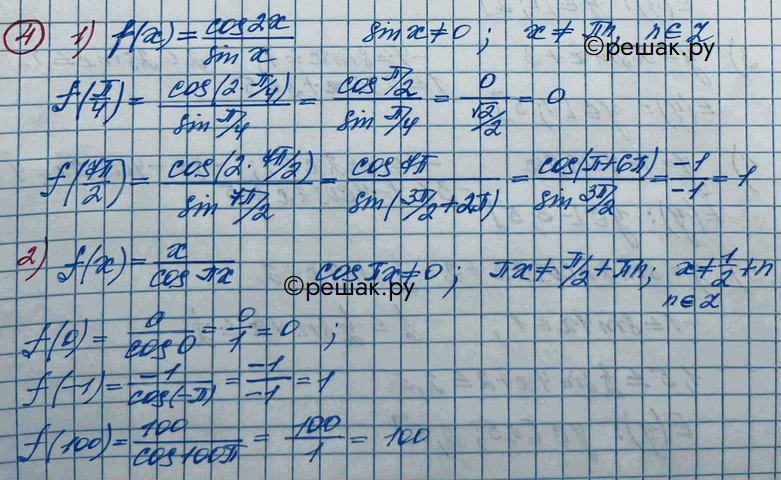 ④ 1) f(x) = cos2x / sin x    sin x ≠ 0 ; x ≠ πn, n ∈ Z
©решак.ру
f(π/4) = cos(2·π/4) / sin π/4 = cos π/2 / sin π/4 = 0 / √2/2 = 0
f(7π/2) = cos(2·7π/2) / sin 7π/2 = cos 7π / sin(3π/2 + 2π) = cos(π + 6π) / sin 3π/2 = -1 / -1 = 1
2) f(x) = x / cos πx    cos πx ≠ 0 ; πx ≠ π/2 + πn ; x ≠ 1/2 + n
©решак.ру
n ∈ Z
f(0) = 0 / cos 0 = 0 / 1 = 0 ;
f(-1) = -1 / cos(-π) = -1 / -1 = 1
f(100) = 100 / cos 100π = 100 / 1 = 100